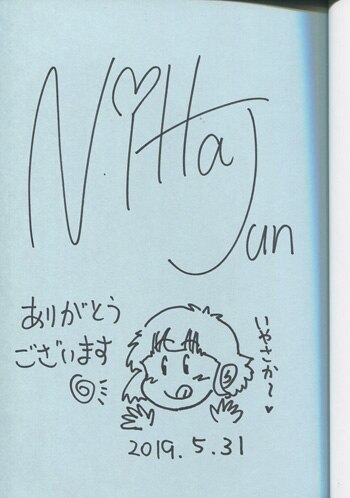 NiHa
Jun
ありがとう
ございます
いやさか〜♥
2019.5.31